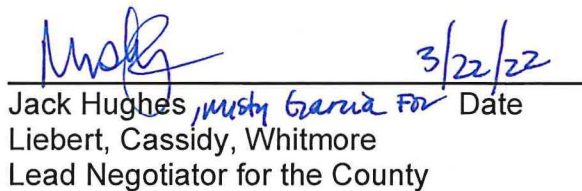 3/22/22
Jack Hughes, Misty Garcia For Date
Liebert, Cassidy, Whitmore
Lead Negotiator for the County